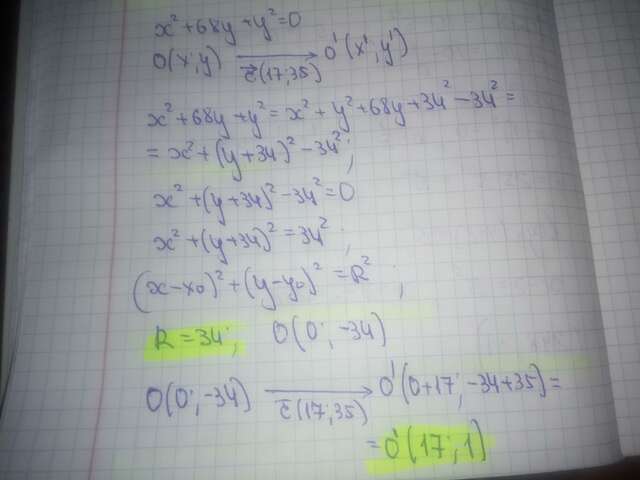 x²+68y+y²=0
O(x;y) → O'(x';y')
c̄(17;35)
x²+68y+y²=x²+y²+68y+34²-34²=
=x²+(y+34)²-34²;
x²+(y+34)²-34²=0
x²+(y+34)²=34²;
(x-x₀)²+(y-y₀)²=R²;
R=34; O(0;-34)
O(0;-34) → O'(0+17;-34+35)=
c̄(17;35)
=O'(17;1)